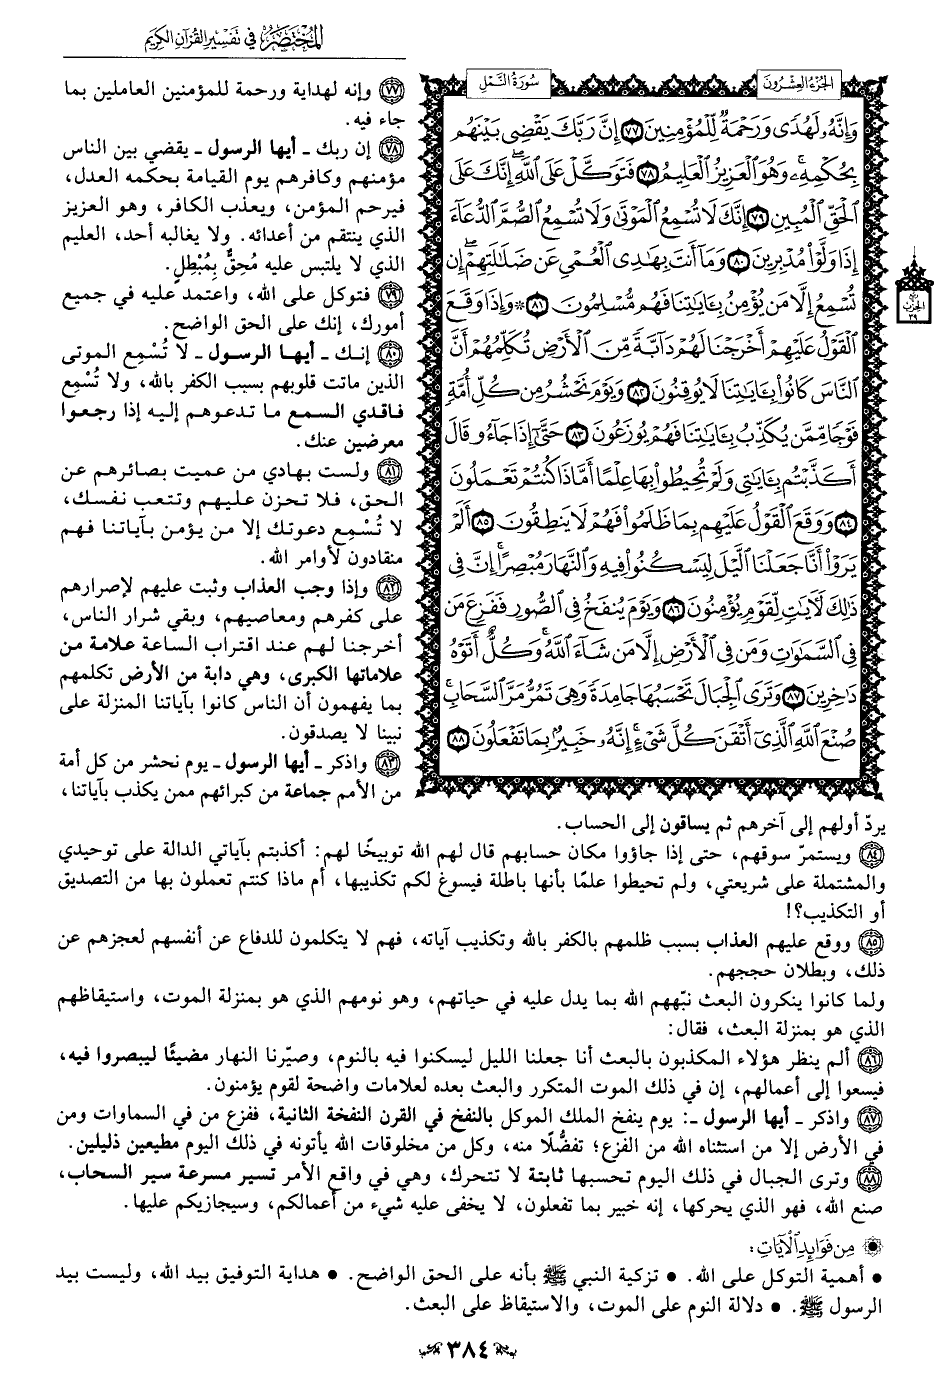 المختصر في تفسير القرآن الكريم
الجزء العشرون
سورة النمل
وَإِنَّهُۥ لَهُدًى وَرَحْمَةٌ لِّلْمُؤْمِنِينَ ٧٧ إِنَّ رَبَّكَ يَقْضِى بَيْنَهُم
بِحُكْمِهِۦۚ وَهُوَ ٱلْعَزِيزُ ٱلْعَلِيمُ ٧٨ فَتَوَكَّلْ عَلَى ٱللَّهِۖ إِنَّكَ عَلَى
ٱلْحَقِّ ٱلْمُبِينِ ٧٩ إِنَّكَ لَا تُسْمِعُ ٱلْمَوْتَىٰ وَلَا تُسْمِعُ ٱلصُّمَّ ٱلدُّعَآءَ
إِذَا وَلَّوْا۟ مُدْبِرِينَ ٨٠ وَمَآ أَنتَ بِهَٰدِى ٱلْعُمْىِ عَن ضَلَٰلَتِهِمْۖ إِن
تُسْمِعُ إِلَّا مَن يُؤْمِنُ بِـَٔايَٰتِنَا فَهُم مُّسْلِمُونَ ٨١ ۞ وَإِذَا وَقَعَ
ٱلْقَوْلُ عَلَيْهِمْ أَخْرَجْنَا لَهُمْ دَآبَّةً مِّنَ ٱلْأَرْضِ تُكَلِّمُهُمْ أَنَّ
ٱلنَّاسَ كَانُوا۟ بِـَٔايَٰتِنَا لَا يُوقِنُونَ ٨٢ وَيَوْمَ نَحْشُرُ مِن كُلِّ أُمَّةٍ
فَوْجًا مِّمَّن يُكَذِّبُ بِـَٔايَٰتِنَا فَهُمْ يُوزَعُونَ ٨٣ حَتَّىٰٓ إِذَا جَآءُو قَالَ
أَكَذَّبْتُم بِـَٔايَٰتِى وَلَمْ تُحِيطُوا۟ بِهَا عِلْمًا أَمَّاذَا كُنتُمْ تَعْمَلُونَ
٨٤ وَوَقَعَ ٱلْقَوْلُ عَلَيْهِم بِمَا ظَلَمُوا۟ فَهُمْ لَا يَنطِقُونَ ٨٥ أَلَمْ
يَرَوْا۟ أَنَّا جَعَلْنَا ٱلَّيْلَ لِيَسْكُنُوا۟ فِيهِ وَٱلنَّهَارَ مُبْصِرًاۚ إِنَّ فِى
ذَٰلِكَ لَـَٔايَٰتٍ لِّقَوْمٍ يُؤْمِنُونَ ٨٦ وَيَوْمَ يُنفَخُ فِى ٱلصُّورِ فَفَزِعَ مَن
فِى ٱلسَّمَٰوَٰتِ وَمَن فِى ٱلْأَرْضِ إِلَّا مَن شَآءَ ٱللَّهُۚ وَكُلٌّ أَتَوْهُ
دَٰخِرِينَ ٨٧ وَتَرَى ٱلْجِبَالَ تَحْسَبُهَا جَامِدَةً وَهِىَ تَمُرُّ مَرَّ ٱلسَّحَابِۚ
صُنْعَ ٱللَّهِ ٱلَّذِىٓ أَتْقَنَ كُلَّ شَىْءٍۚ إِنَّهُۥ خَبِيرٌۢ بِمَا تَفْعَلُونَ ٨٨
الحزب
٣٩
٧٧ وإنه لهداية ورحمة للمؤمنين العاملين بما
جاء فيه.
٧٨ إن ربك ـ أيها الرسول ـ يقضي بين الناس
مؤمنهم وكافرهم يوم القيامة بحكمه العدل،
فيرحم المؤمن، ويعذب الكافر، وهو العزيز
الذي ينتقم من أعدائه. ولا يغالبه أحد، العليم
الذي لا يلتبس عليه مُحِقٌّ بِمُبْطِلٍ.
٧٩ فتوكل على الله، واعتمد عليه في جميع
أمورك، إنك على الحق الواضح.
٨٠ إنك ـ أيها الرسول ـ لا تُسْمِع الموتى
الذين ماتت قلوبهم بسبب الكفر بالله، ولا تُسْمِع
فاقدي السمع ما تدعوهم إليه إذا رجعوا
معرضين عنك.
٨١ ولست بهادي من عميت بصائرهم عن
الحق، فلا تحزن عليهم وتتعب نفسك،
لا تُسْمِع دعوتك إلا من يؤمن بآياتنا فهم
منقادون لأوامر الله.
٨٢ وإذا وجب العذاب وثبت عليهم لإصرارهم
على كفرهم ومعاصيهم، وبقي شرار الناس،
أخرجنا لهم عند اقتراب الساعة علامة من
علاماتها الكبرى، وهي دابة من الأرض تكلمهم
بما يفهمون أن الناس كانوا بآياتنا المنزلة على
نبينا لا يصدقون.
٨٣ واذكر ـ أيها الرسول ـ يوم نحشر من كل أمة
من الأمم جماعة من كبرائهم ممن يكذب بآياتنا،
يردّ أولهم إلى آخرهم ثم يساقون إلى الحساب.
٨٤ ويستمرّ سوقهم، حتى إذا جاؤوا مكان حسابهم قال لهم الله توبيخًا لهم: أكذبتم بآياتي الدالة على توحيدي
والمشتملة على شريعتي، ولم تحيطوا علمًا بأنها باطلة فيسوغ لكم تكذيبها، أم ماذا كنتم تعملون بها من التصديق
أو التكذيب؟!
٨٥ ووقع عليهم العذاب بسبب ظلمهم بالكفر بالله وتكذيب آياته، فهم لا يتكلمون للدفاع عن أنفسهم لعجزهم عن
ذلك، وبطلان حججهم.
ولما كانوا ينكرون البعث نبّههم الله بما يدل عليه في حياتهم، وهو نومهم الذي هو بمنزلة الموت، واستيقاظهم
الذي هو بمنزلة البعث، فقال:
٨٦ ألم ينظر هؤلاء المكذبون بالبعث أنا جعلنا الليل ليسكنوا فيه بالنوم، وصيّرنا النهار مضيئًا ليبصروا فيه،
فيسعوا إلى أعمالهم، إن في ذلك الموت المتكرر والبعث بعده لعلامات واضحة لقوم يؤمنون.
٨٧ واذكر ـ أيها الرسول ـ: يوم ينفخ الملك الموكل بالنفخ في القرن النفخة الثانية، ففزع من في السماوات ومن
في الأرض إلا من استثناه الله من الفزع؛ تفضُّلًا منه، وكل من مخلوقات الله يأتونه في ذلك اليوم مطيعين ذليلين.
٨٨ وترى الجبال في ذلك اليوم تحسبها ثابتة لا تتحرك، وهي في واقع الأمر تسير مسرعة سير السحاب،
صنع الله، فهو الذي يحركها، إنه خبير بما تفعلون، لا يخفى عليه شيء من أعمالكم، وسيجازيكم عليها.
من فوائد الآيات:
• أهمية التوكل على الله. • تزكية النبي ﷺ بأنه على الحق الواضح. • هداية التوفيق بيد الله، وليست بيد
الرسول ﷺ. • دلالة النوم على الموت، والاستيقاظ على البعث.
٣٨٤